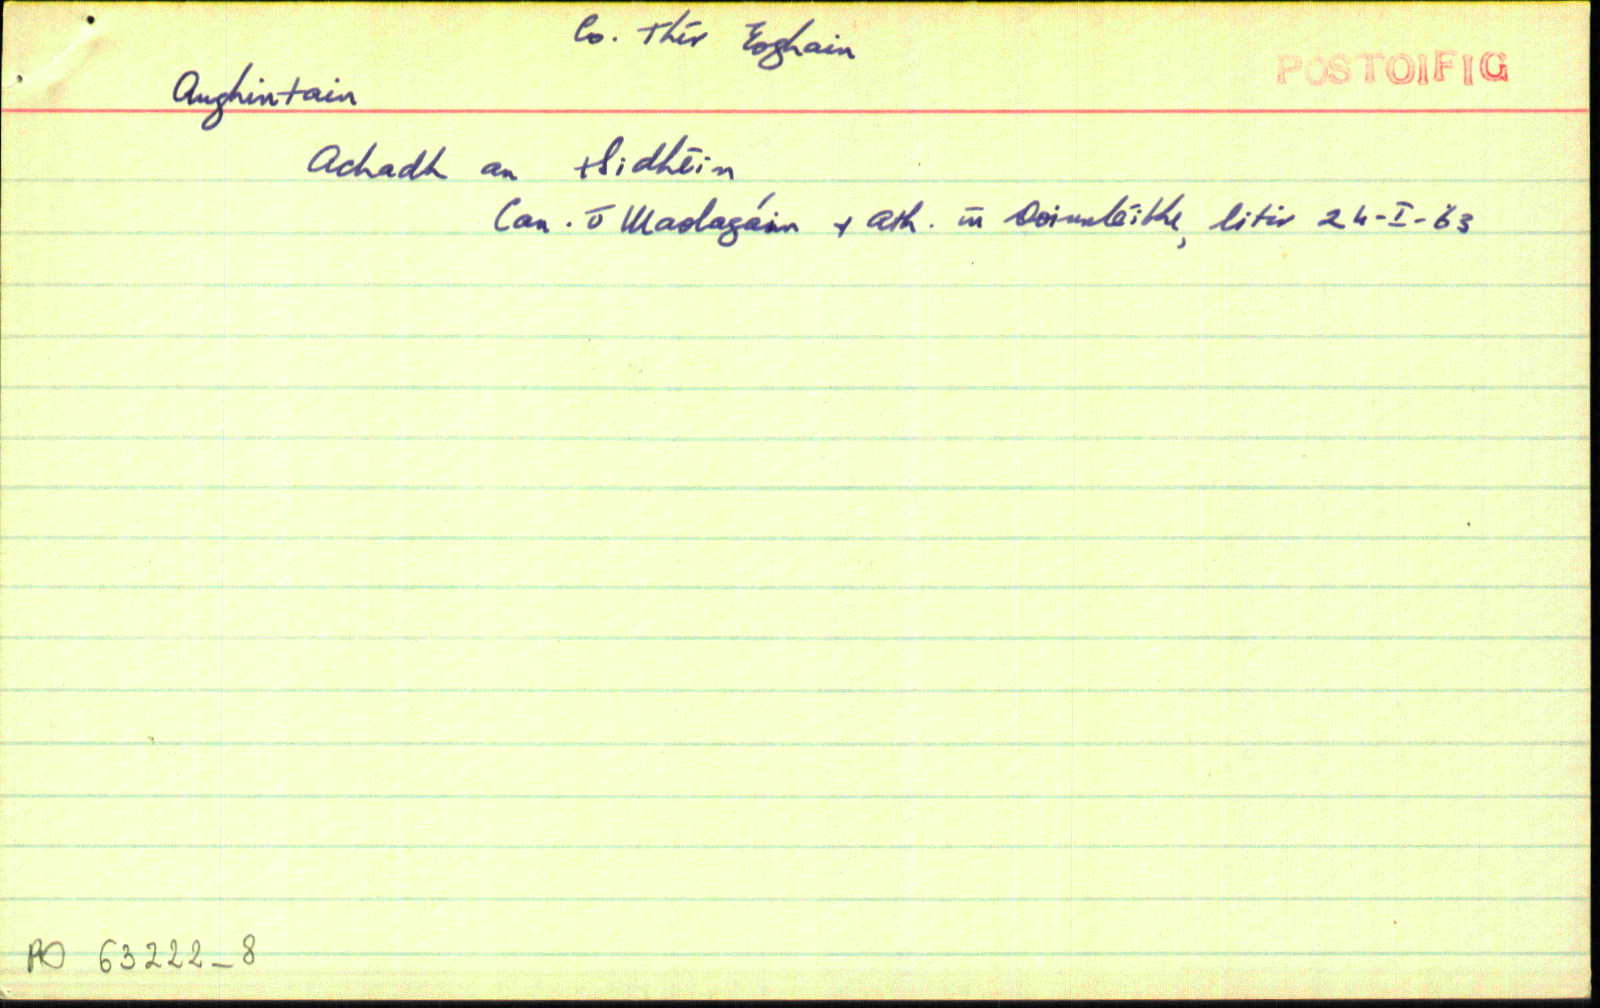 Co. Thír Eoghain
POSTOIFIG
Aughintain
Achadh an tSidhéin
Can. Ó Maolagáin + Ath. Ó Doirnláithe, litir 24-I-63
PO 63222_8